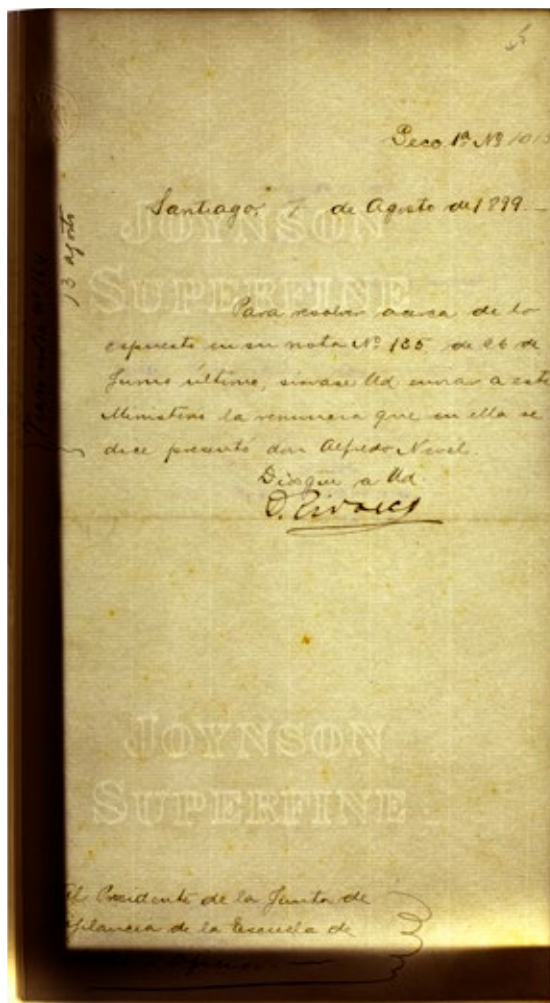 Secc. 1ª Nº 1013
Santiago, 7 de Agosto de 1899.
13 agosto
Para resolver acerca de lo
espuesto en su nota Nº 135 de 26 de
Junio último, sírvase Ud enviar a este
Ministerio la renuncia que en ella se
dice presentó don Alfredo
Dios gue a Ud.
JOYNSON
SUPERFINE
JOYNSON
SUPERFINE
Al Presidente de la Junta de
Vijilancia de la Escuela de